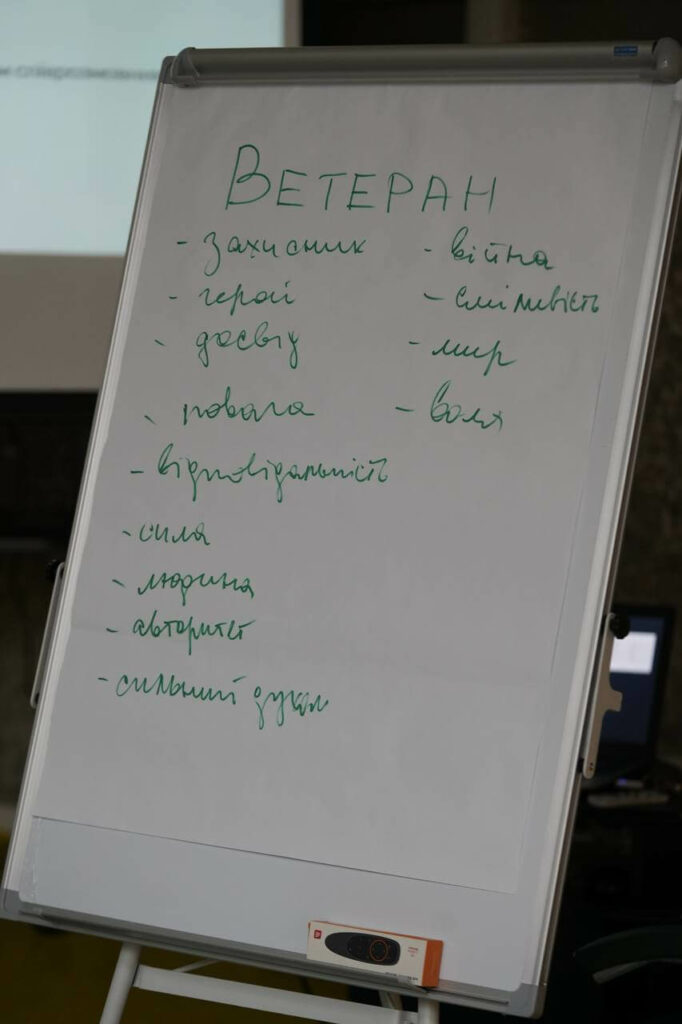 ВЕТЕРАН
- захисник
- герой
- досвід
- повага
- відповідальність
- сила
- людина
- авторитет
- сильний духом
- війна
- сміливість
- мир
- воля